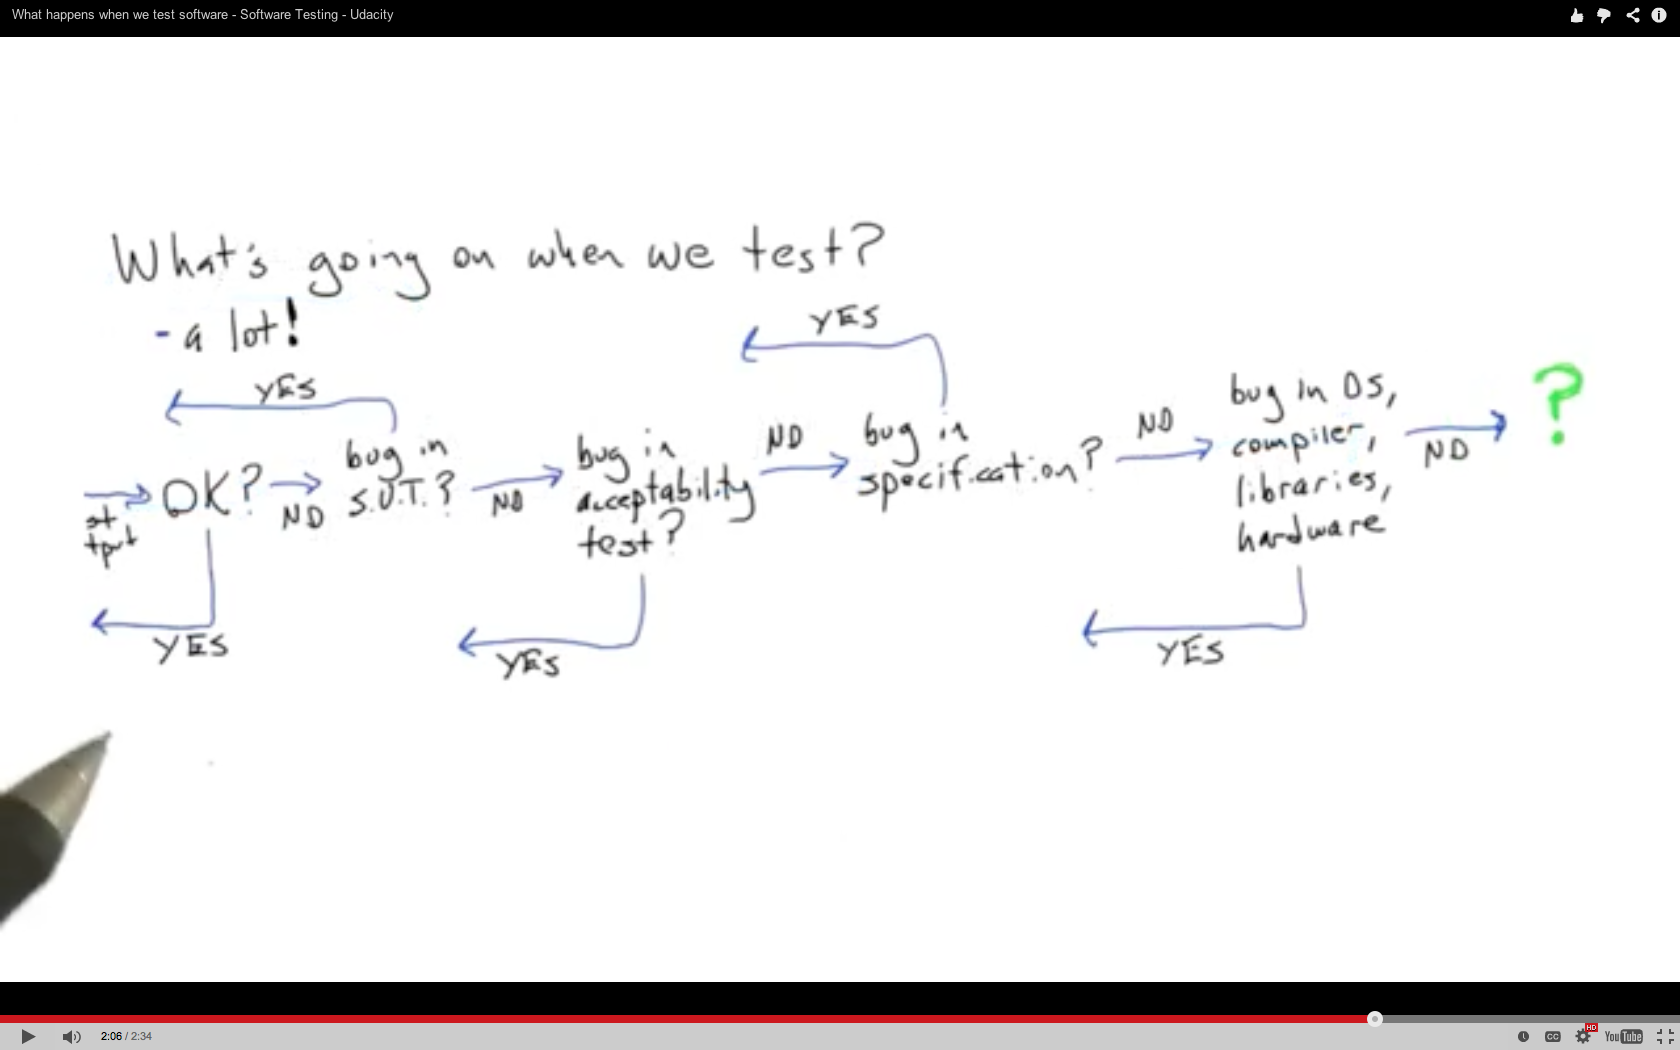 What happens when we test software - Software Testing - Udacity
What's going on when we test?
- a lot!
YES
YES
OK?
NO
bug in
S.U.T.?
NO
bug in
acceptability
test?
NO
bug in
specification?
NO
bug in OS,
compiler,
libraries,
hardware
NO
?
tput
YES
YES
YES
2:06 / 2:34
CC
HD
YouTube